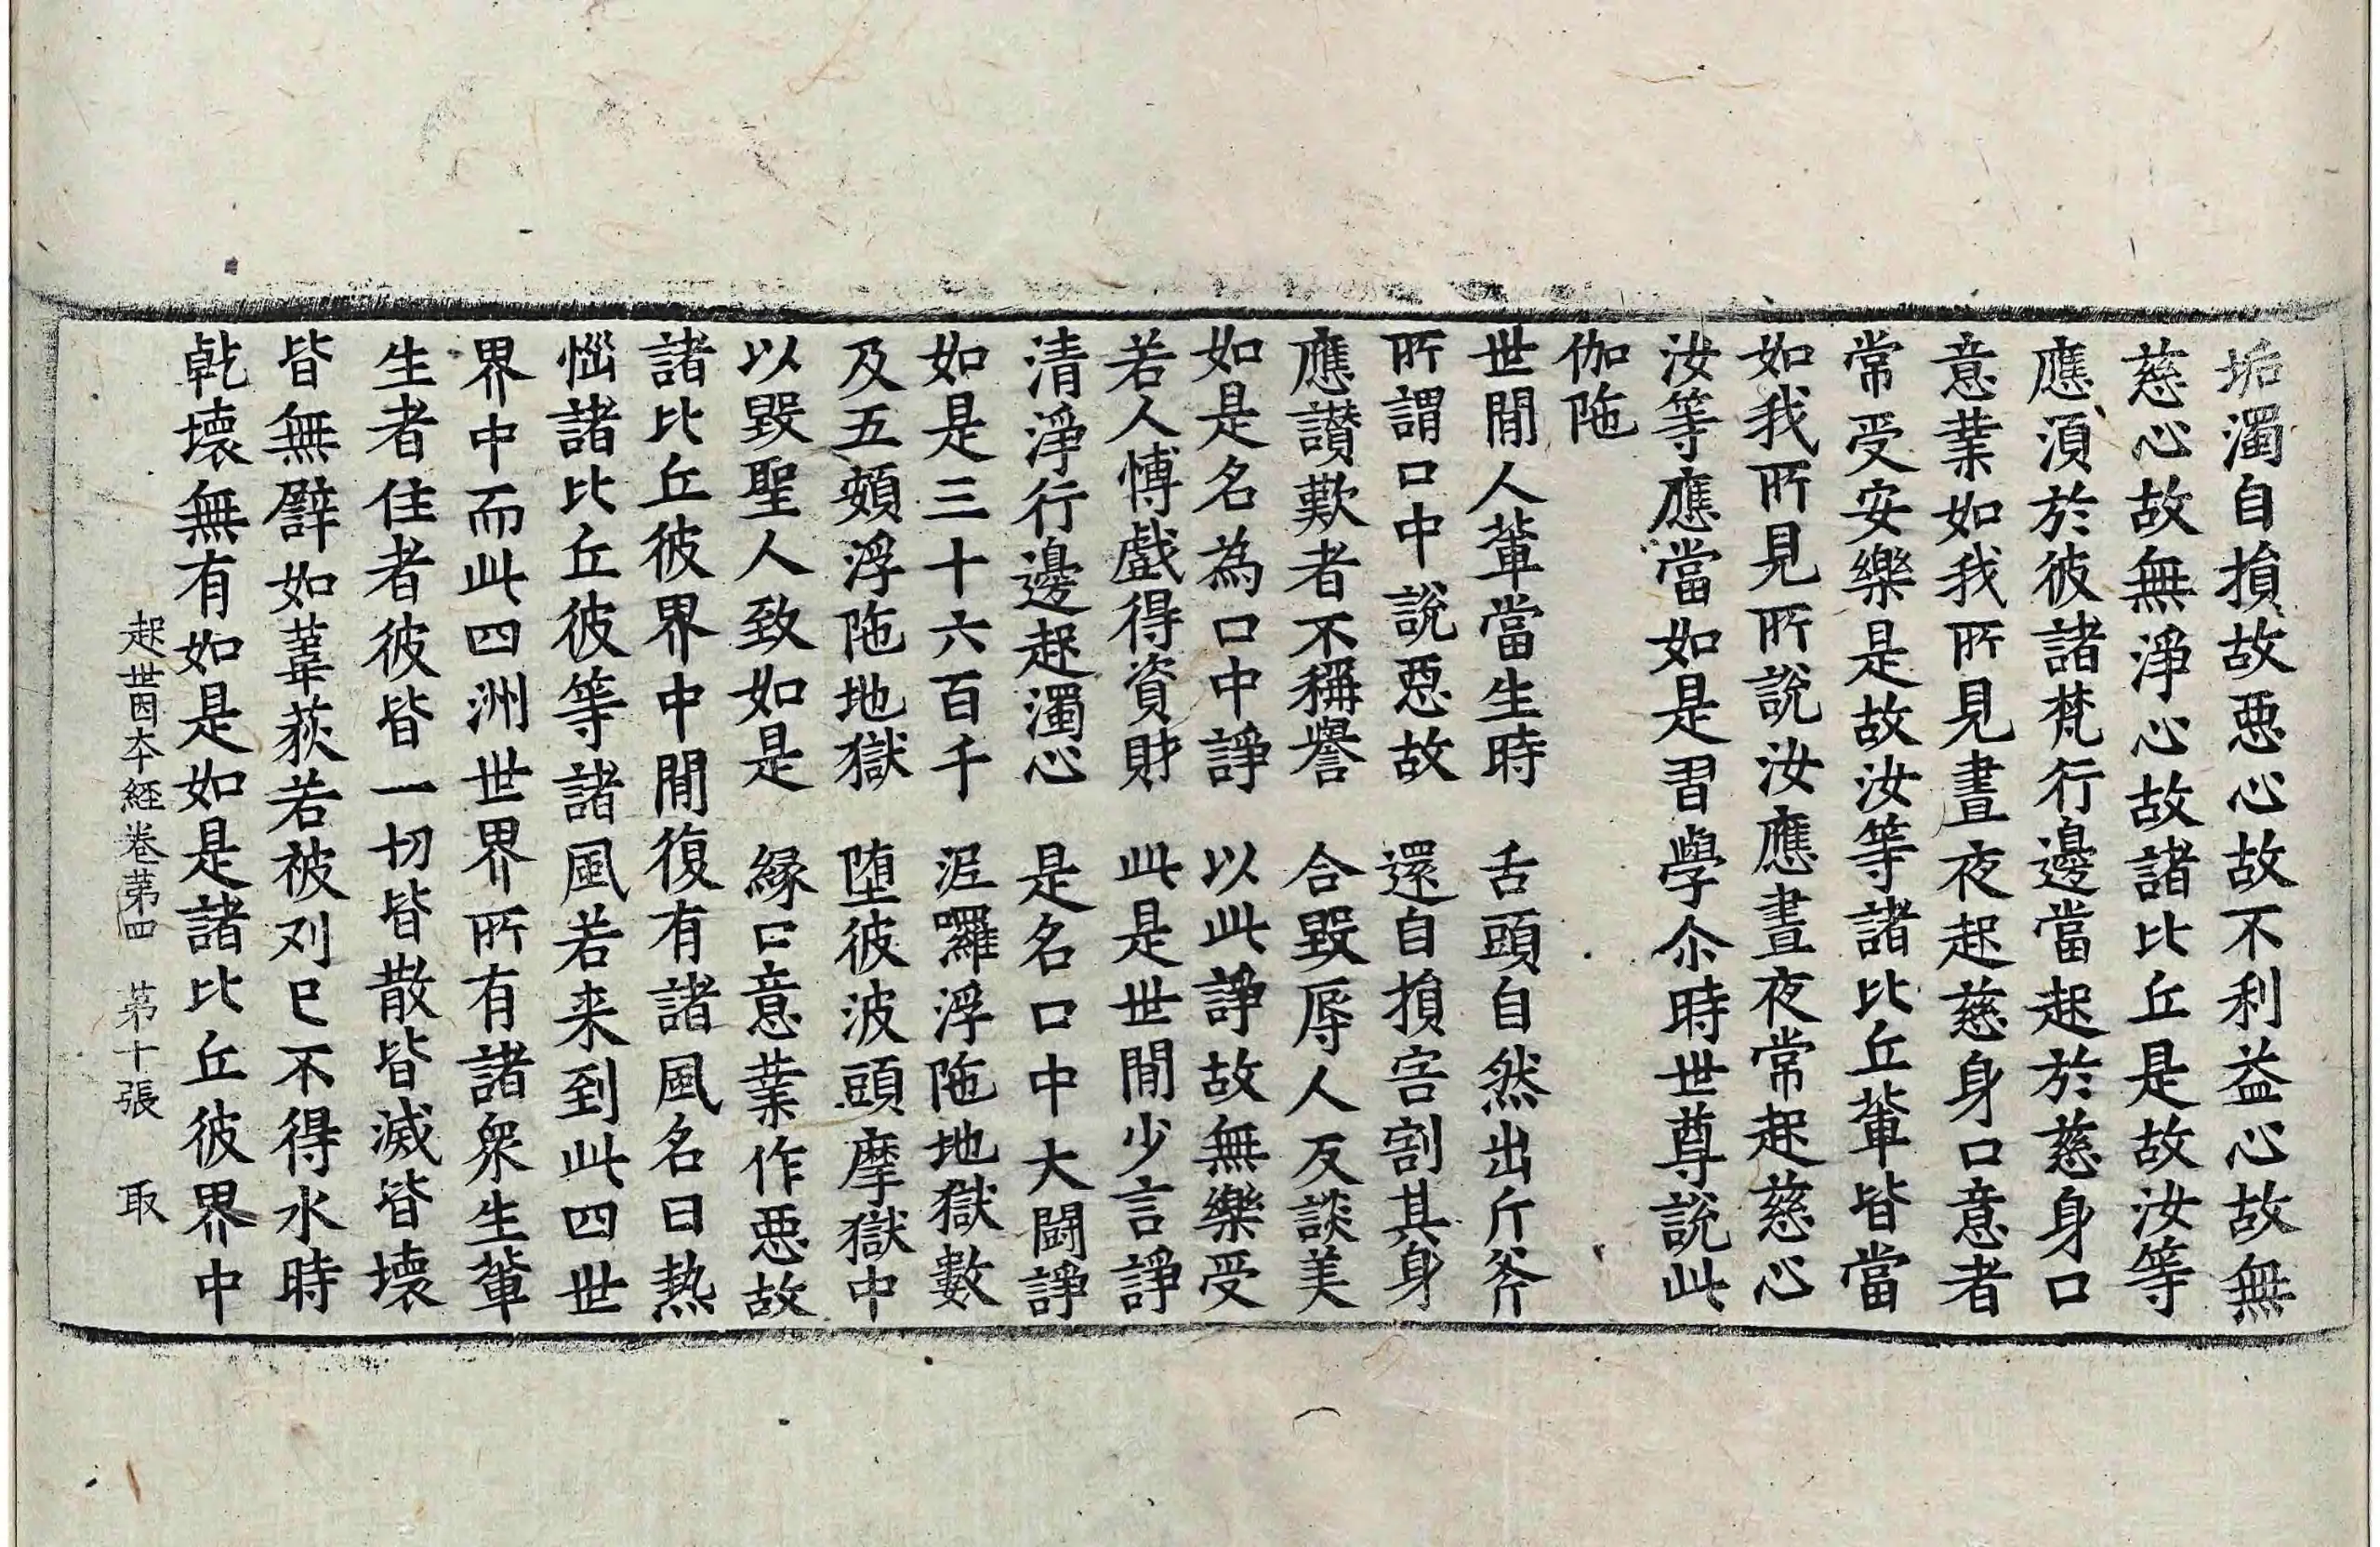 垢濁自損故惡心故不利益心故無
慈心故無淨心故諸比丘是故汝等
應湏於彼諸梵行邊當起於慈身口
意業如我所見晝夜起慈身口意者
常受安樂是故汝等諸比丘輩皆當
如我所見所說汝應晝夜常起慈心
汝等應當如是習學尒時世尊說此
伽陁
世閒人輩當生時　舌頭自然出斤斧
所謂口中說惡故　還自損害割其身
應讃歎者不稱譽　合毀辱人反談美
如是名為口中諍　以此諍故無樂受
若人愽戲得資財　此是世閒少言諍
清淨行邊起濁心　是名口中大鬪諍
如是三十六百千　泥囉浮陁地獄數
及五頞浮陁地獄　堕彼波頭摩獄中
以毀聖人致如是　緣口意業作惡故
諸比丘彼界中閒復有諸風名曰熱
惱諸比丘彼等諸風若来到此四世
界中而此四洲世界所有諸衆生輩
生者住者彼皆一切皆散皆滅皆壞
皆無譬如葦荻若被刈已不得水時
乾壞無有如是如是諸比丘彼界中
起世因本經卷第四　第十張　取